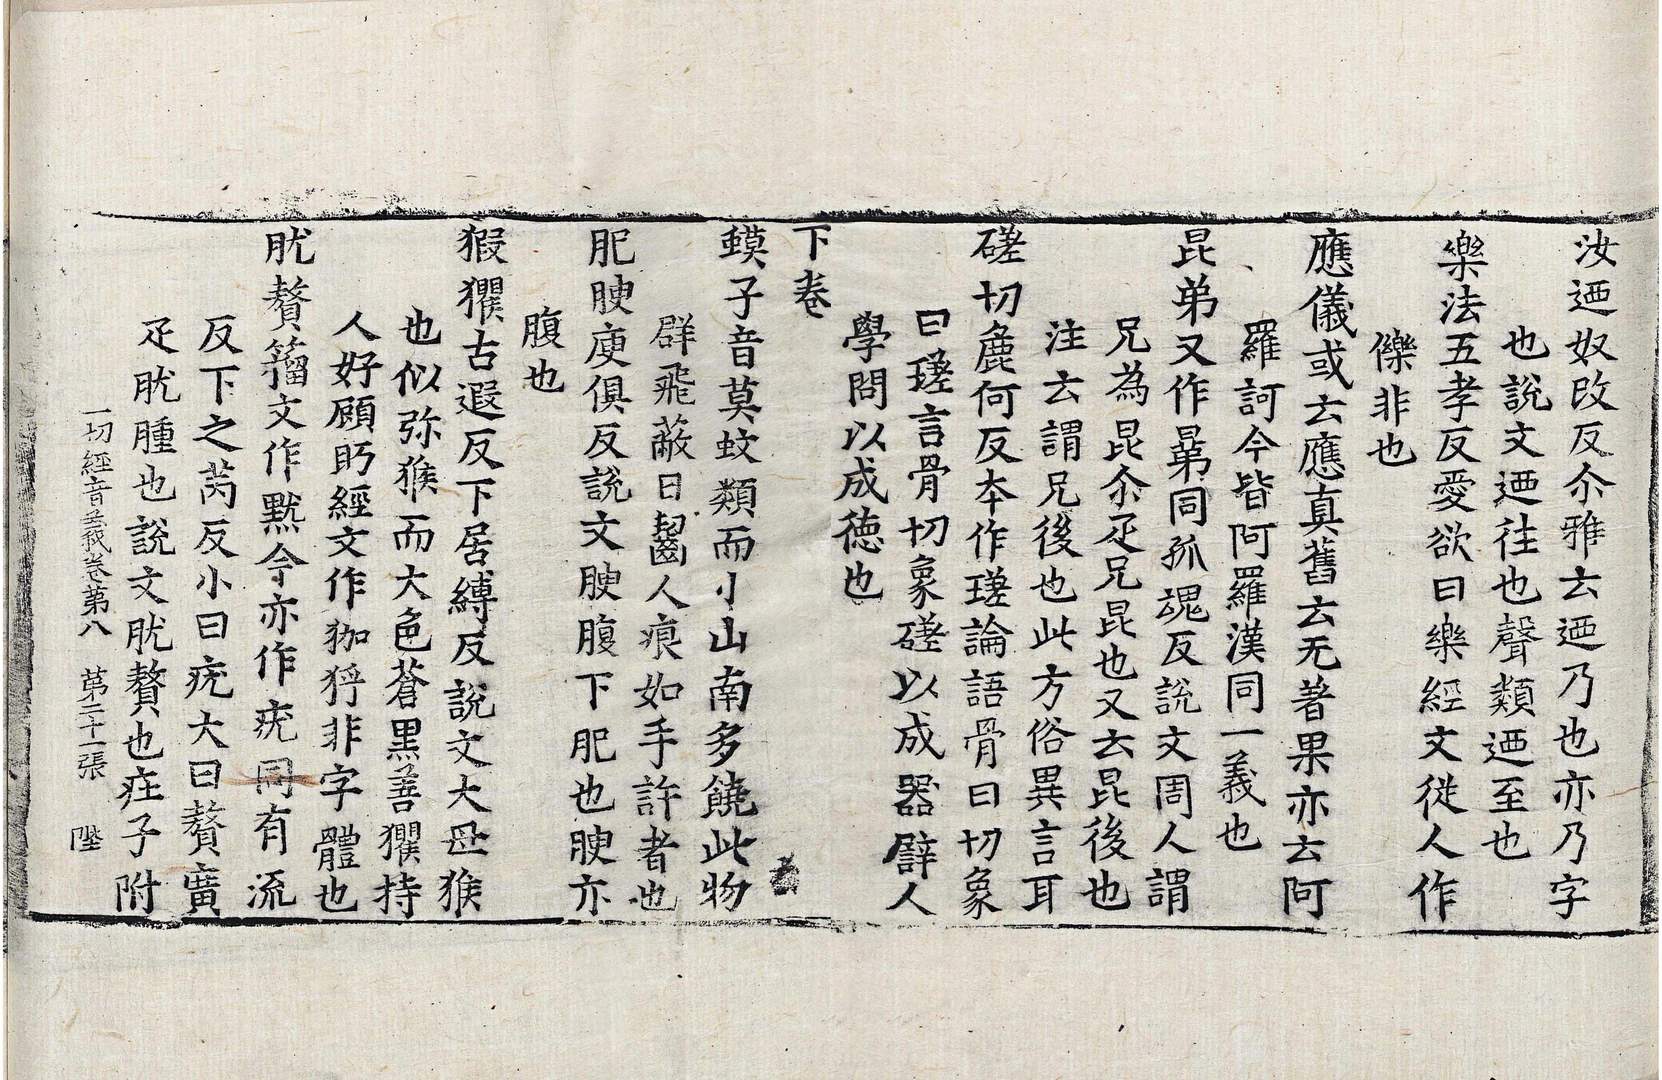 汝迺奴改反尒雅云迺乃也亦乃字
也說文迺往也聲類迺至也
樂法五孝反愛欲曰樂經文從人作
㒩非也
應儀或云應真舊云无著果亦云阿
羅訶今皆阿羅漢同一義也
昆弟又作𦒳同孤魂反說文周人謂
兄為昆尒疋兄昆也又云昆後也
注云謂兄後也此方俗異言耳
磋切麁何反本作瑳論語骨曰切象
曰瑳言骨切象磋以成器辟人
學問以成德也
下卷
蟆子音莫蚊類而小山南多饒此物
群飛蔽日齧人痕如手許者也
肥腴庾俱反說文腴腹下肥也腴亦
腹也
猳玃古遐反下居縛反說文大母猴
也似弥猴而大色蒼黑善玃持
人好顧眄經文作狖狩非字體也
肬贅籀文作默今亦作疣同有流
反下之芮反小曰疣大曰贅廣
疋肬腫也說文肬贅也疰子附
一切經音義卷第八 第二十一張 陞